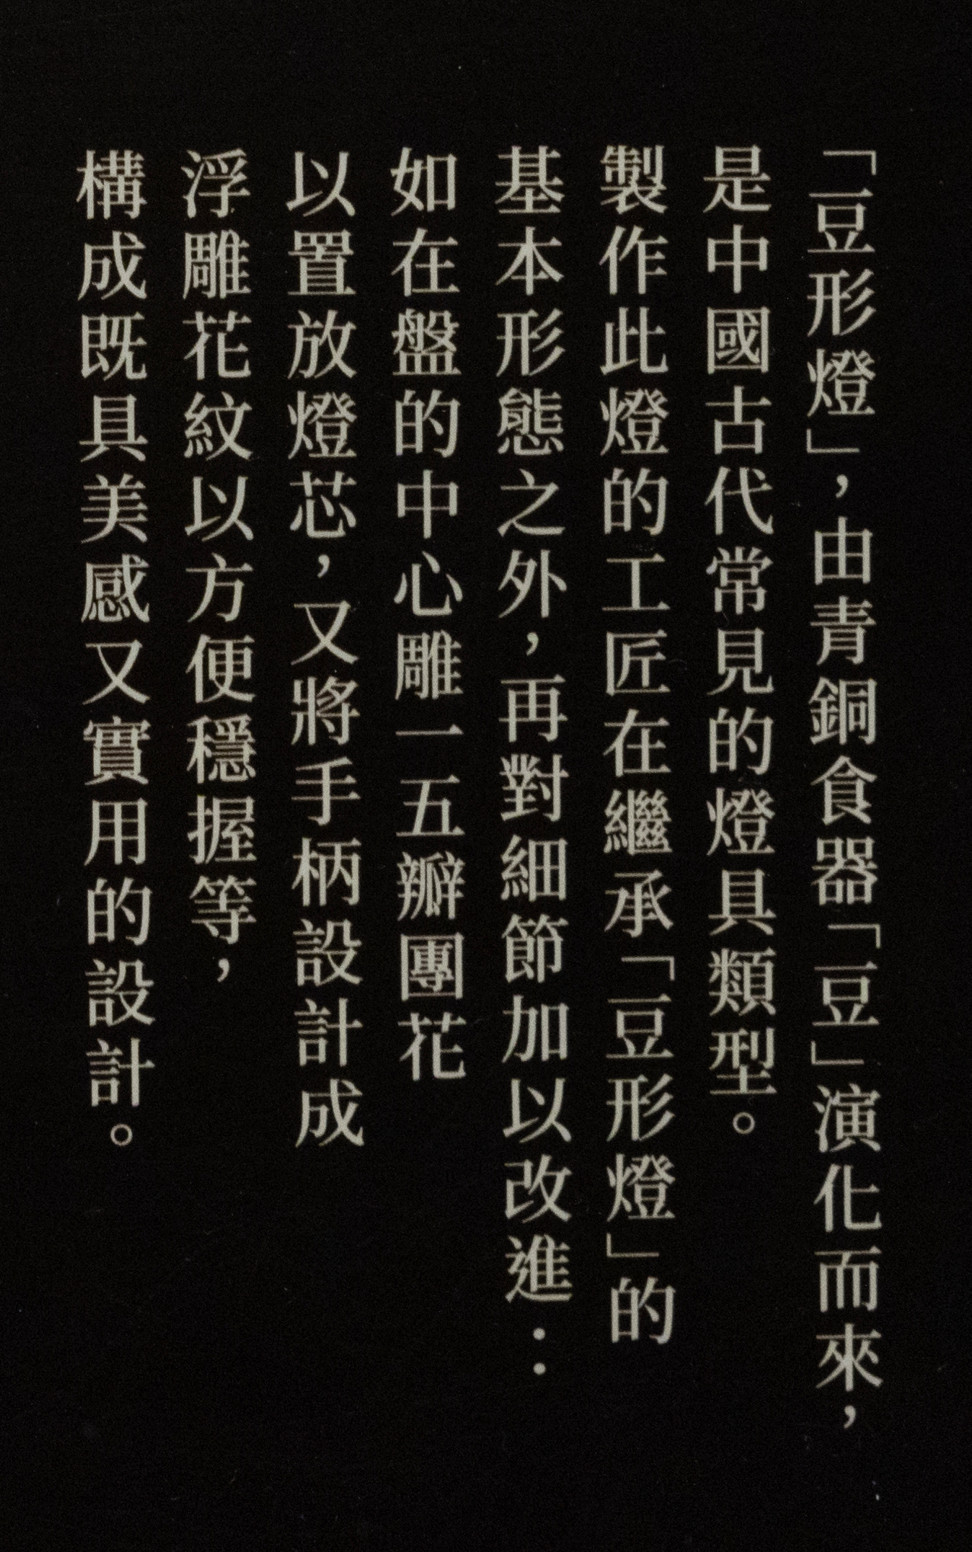 「豆形燈」，由青銅食器「豆」演化而來，
是中國古代常見的燈具類型。
製作此燈的工匠在繼承「豆形燈」的
基本形態之外，再對細節加以改進：
如在盤的中心雕一五瓣團花
以置放燈芯，又將手柄設計成
浮雕花紋以方便穩握等，
構成既具美感又實用的設計。